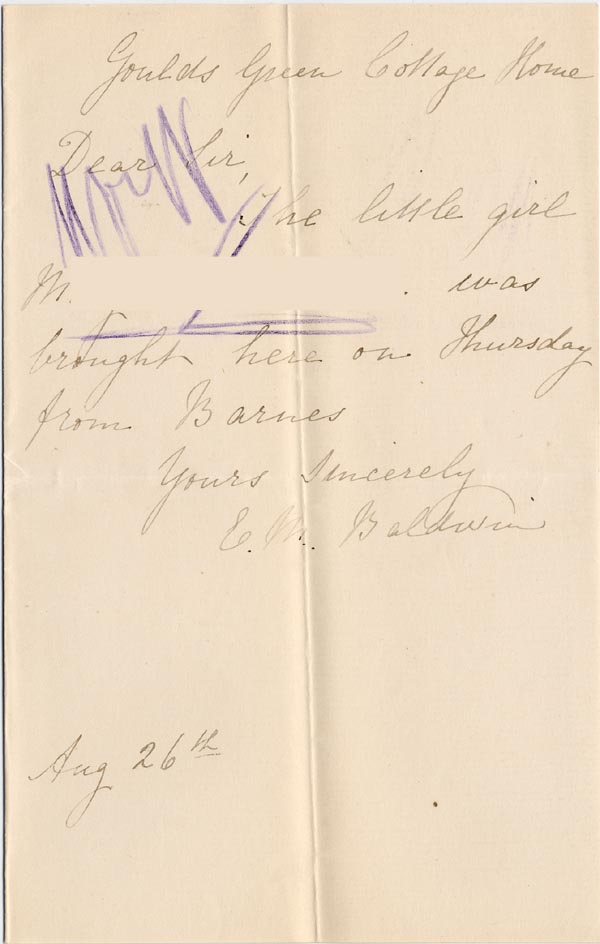 Goulds Green Cottage Home
Dear Sir,
The little girl
M. . was
brought here on Thursday
from Barnes
Yours Sincerely
E. M. Baldwin
Aug 26th